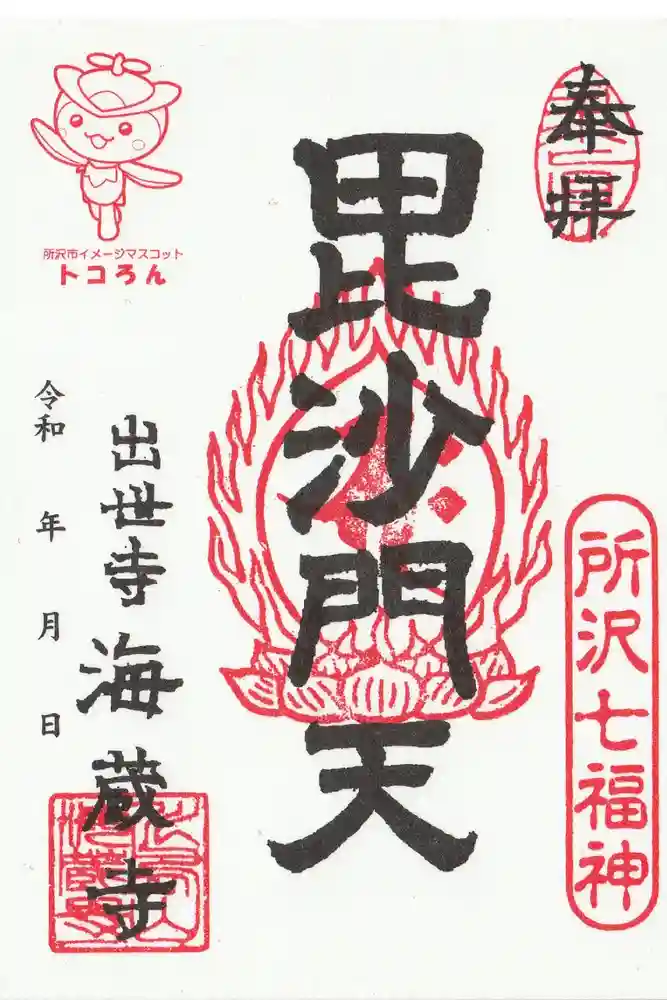 奉拝
所沢七福神
毘沙門天
出世寺 海蔵寺
令和 年 月 日
所沢市イメージマスコット
トコろん